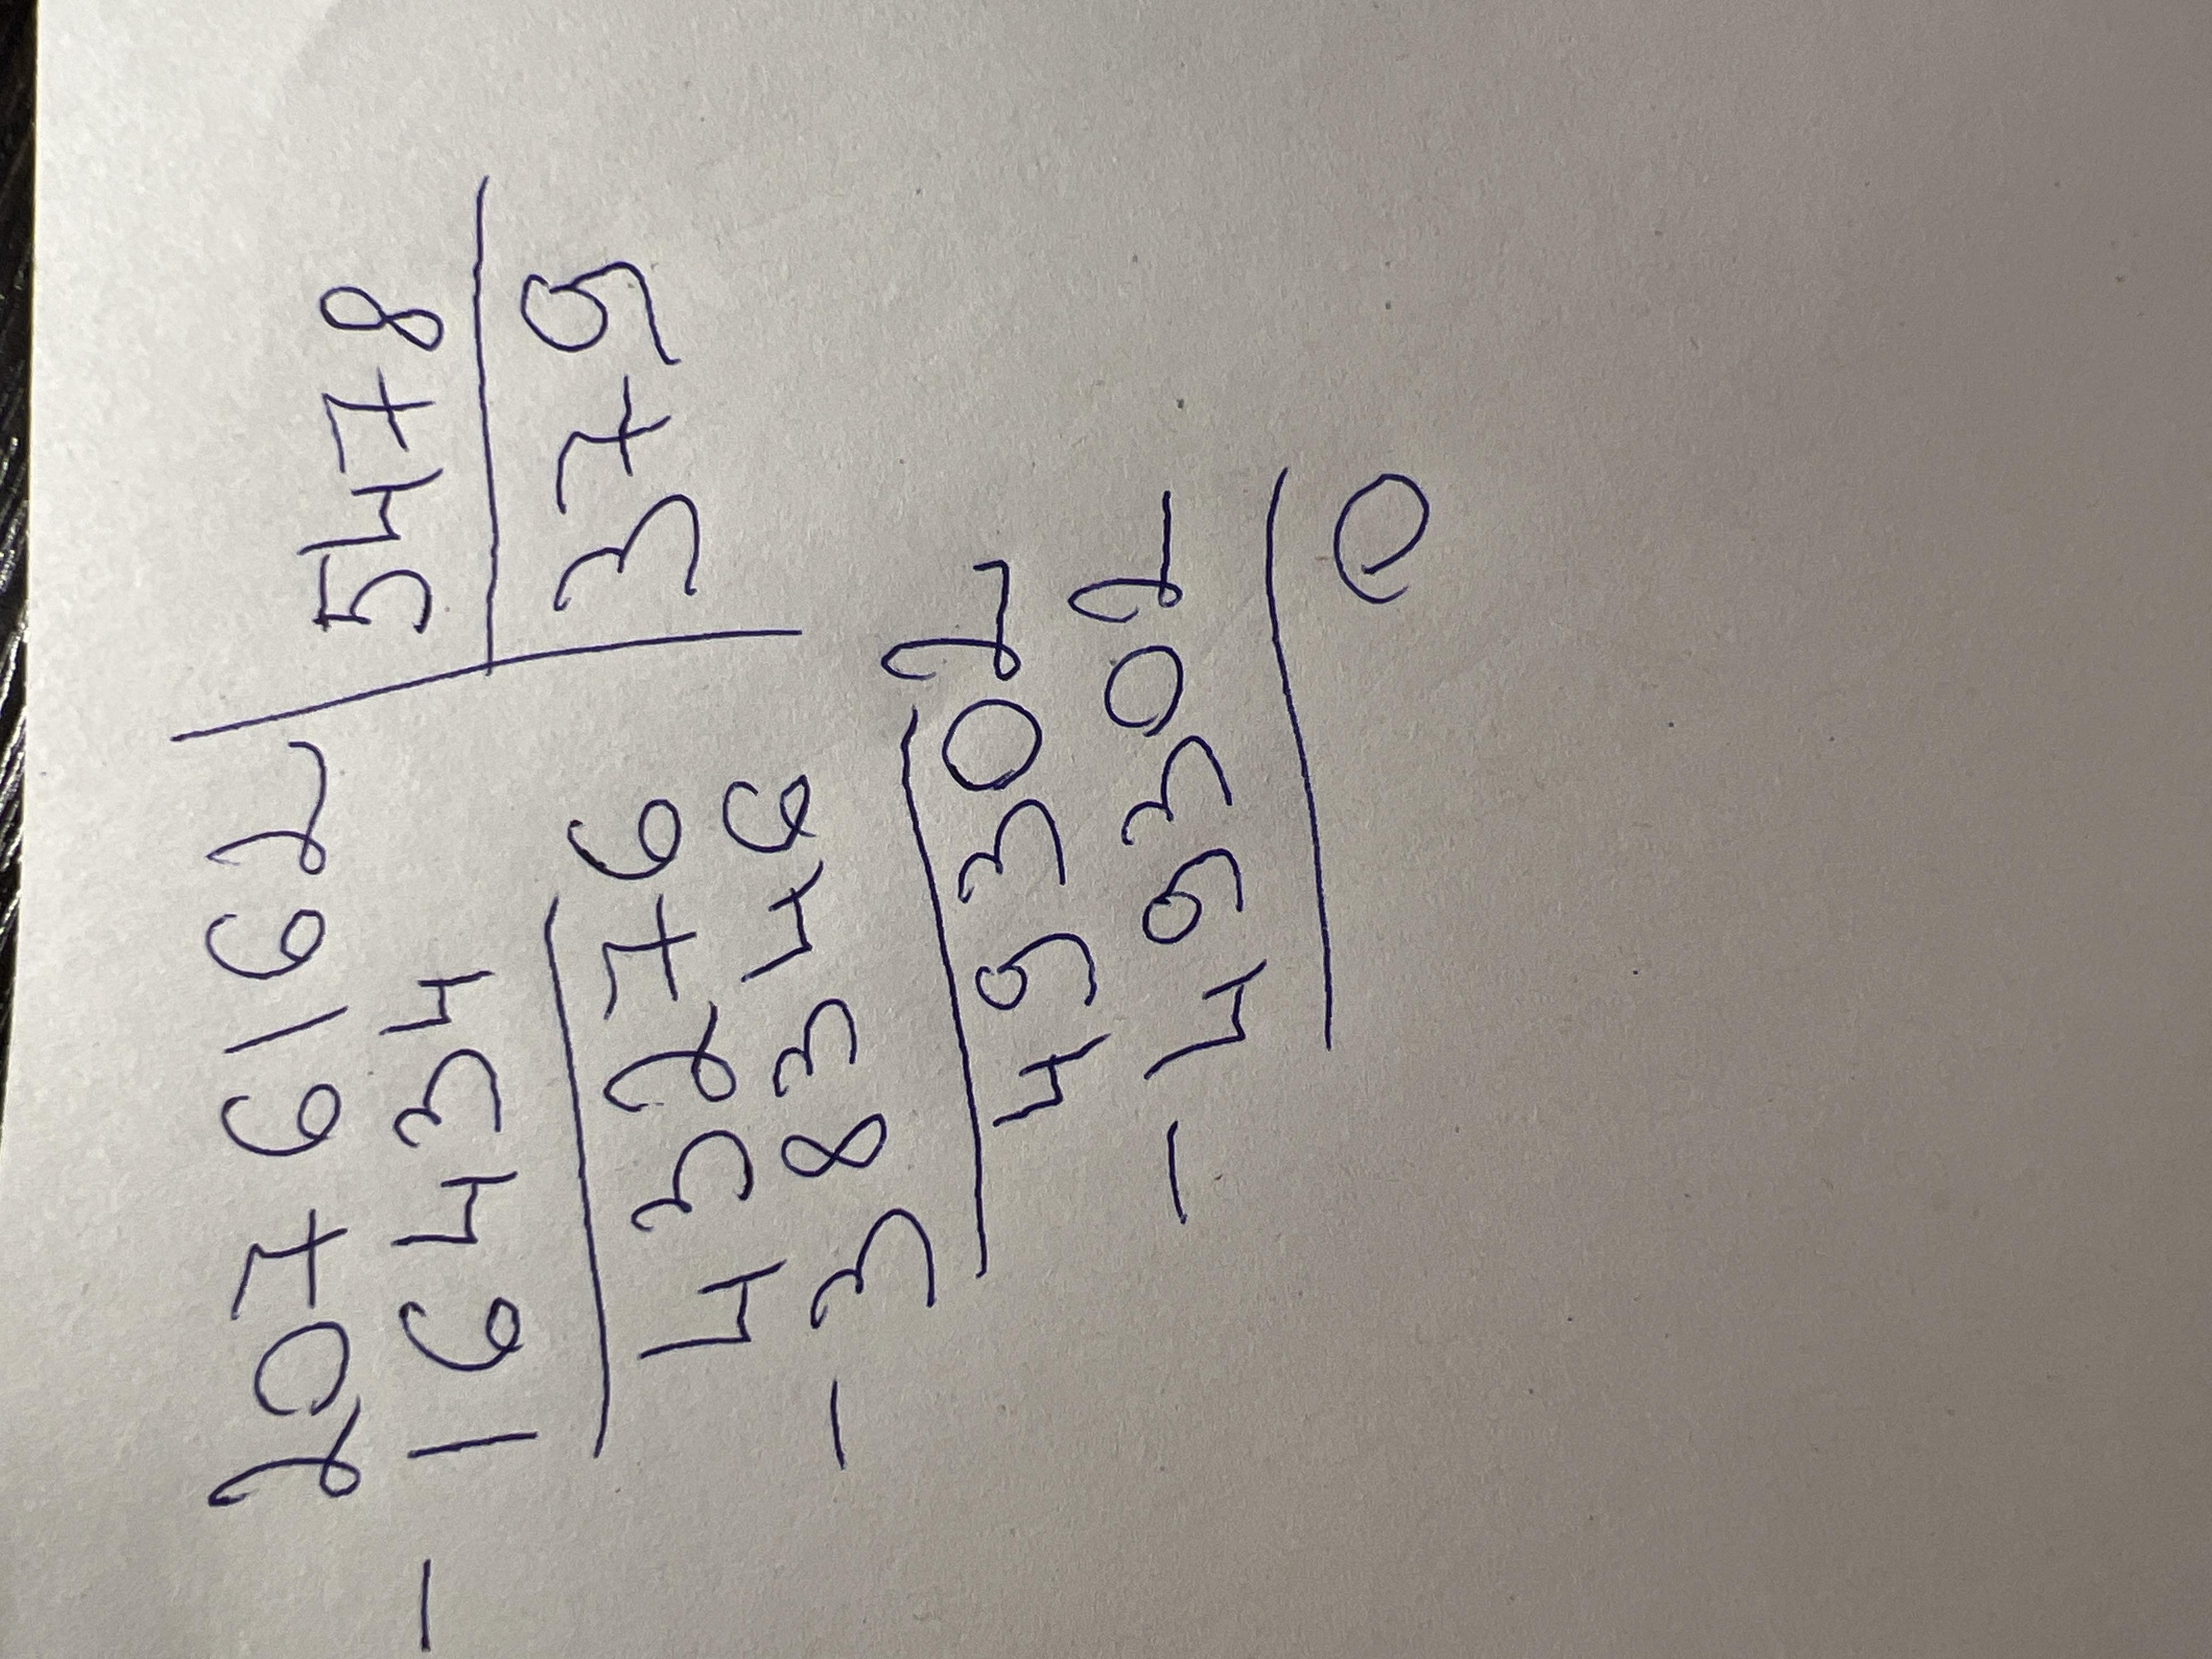 2076162 5478
- 16434 379
43276
- 38346
49302
- 49302
0